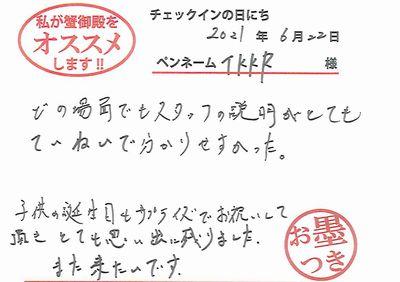 私が蟹御殿を
オススメ
します!!
チェックインの日にち
2021年6月22日
ペンネーム TKKR 様
どの場面でもスタッフの説明がとても
ていねいで分かりやすかった。
子供の誕生日もサプライズでお祝いして
頂き とても思い出に残りました。
また来たいです。
お墨
つき